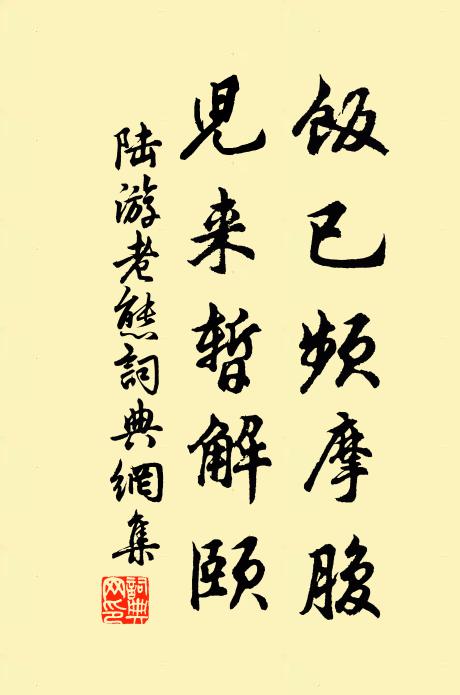 飯已頻摩腹
児来暫解頤
陸游老態詞典網集
詞典网印